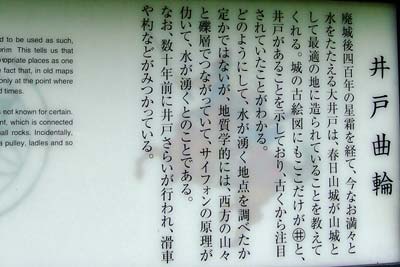 井戸曲輪
廃城後四百年の星霜を経て、今なお満々と
水をたたえる大井戸は、春日山城が山城と
して最適の地に造られていることを教えて
くれる。城の古絵図にもここだけが㊌と、
井戸があることを示しており、古くから注目
されていたことがわかる。
どのようにして、水が湧く地点を調べたか
定かではないが、地質学的には、西方の山々
と礫層でつながっていて、サイフォンの原理が
働いて、水が湧くとのことである。
なお、数十年前に井戸さらいが行われ、滑車
や杓などがみつかっている。
d to be used as such,
orim This tells us that
propriate places as one
e fact that, in old maps
only at the point where
d times.
s not known for certain.
nt, which is connected
all rocks. Incidentally,
a pulley, ladles and so